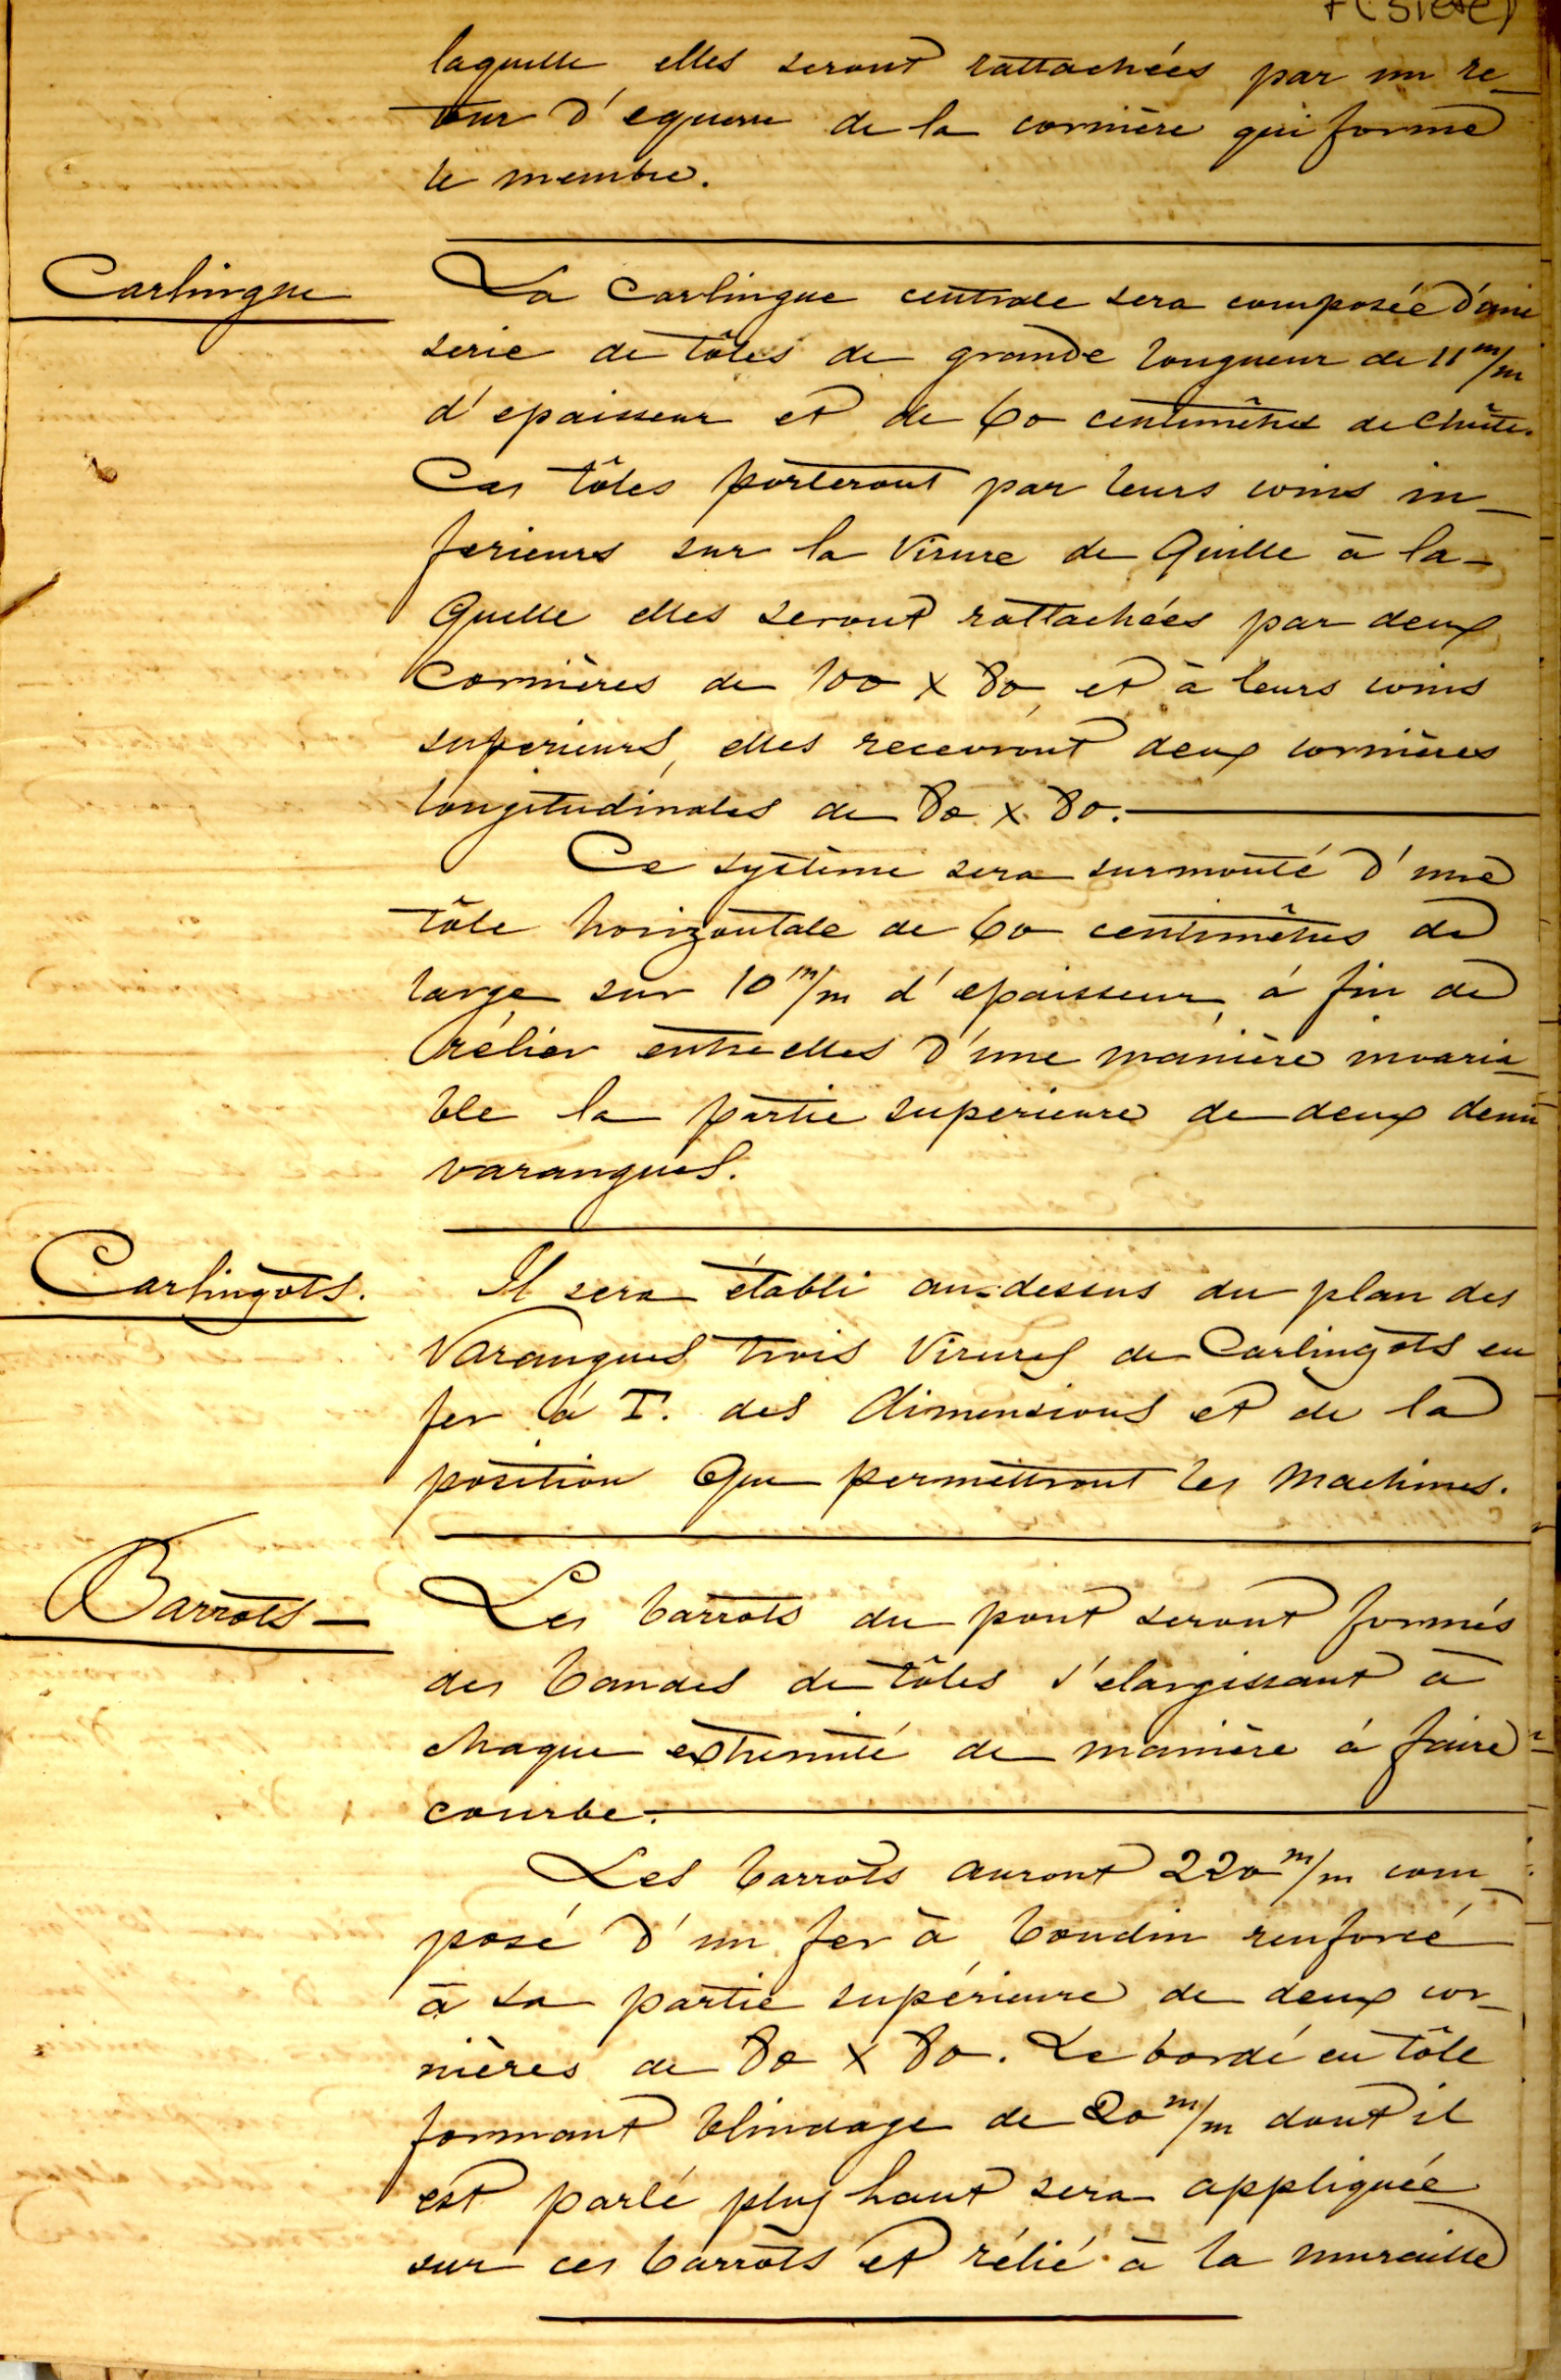 7 (siete)
laquelle elles seront rattachées par un re-
tour d'equerre de la cornière qui forme
le membre.
Carlingue
La Carlingue centrale sera composée d'une
serie de tôles de grande longueur de 11 m/m
d'epaisseur et de 60 centimêtres de chûte.
Ces tôles porteront par leurs coins in-
ferieurs sur la Virure de Quille à la-
quelle elles seront rattachées par deux
Cornières de 100 x 80, et à leurs coins
superieurs, elles recevront deux cornières
longitudinales de 80 x 80.
Ce système sera surmonté d'une
tôle horizontale de 60 centimêtres de
large sur 10 m/m d'epaisseur, á fin de
rélier entre elles d'une manière invaria-
ble la partie superieure de deux demi
varangues.
Carlingots.
Il sera établi au-dessus du plan des
Varangues trois Virures de Carlingots en
fer à T. des dimensions et de la
position que permettront les machines.
Barrots -
Les barrots du pont seront formés
des bandes de tôles s'elargissant à
chaque extremité de manière á faire
courbe.
Les barrots auront 220 m/m com-
posé d'un fer à boudin renforcé
à sa partie supérieure de deux cor-
nières de 80 x 80. Le bordé en tôle
formant blindage de 20 m/m dont il
est parlé plus haut sera appliquée
sur ces barrots et rélié à la muraille